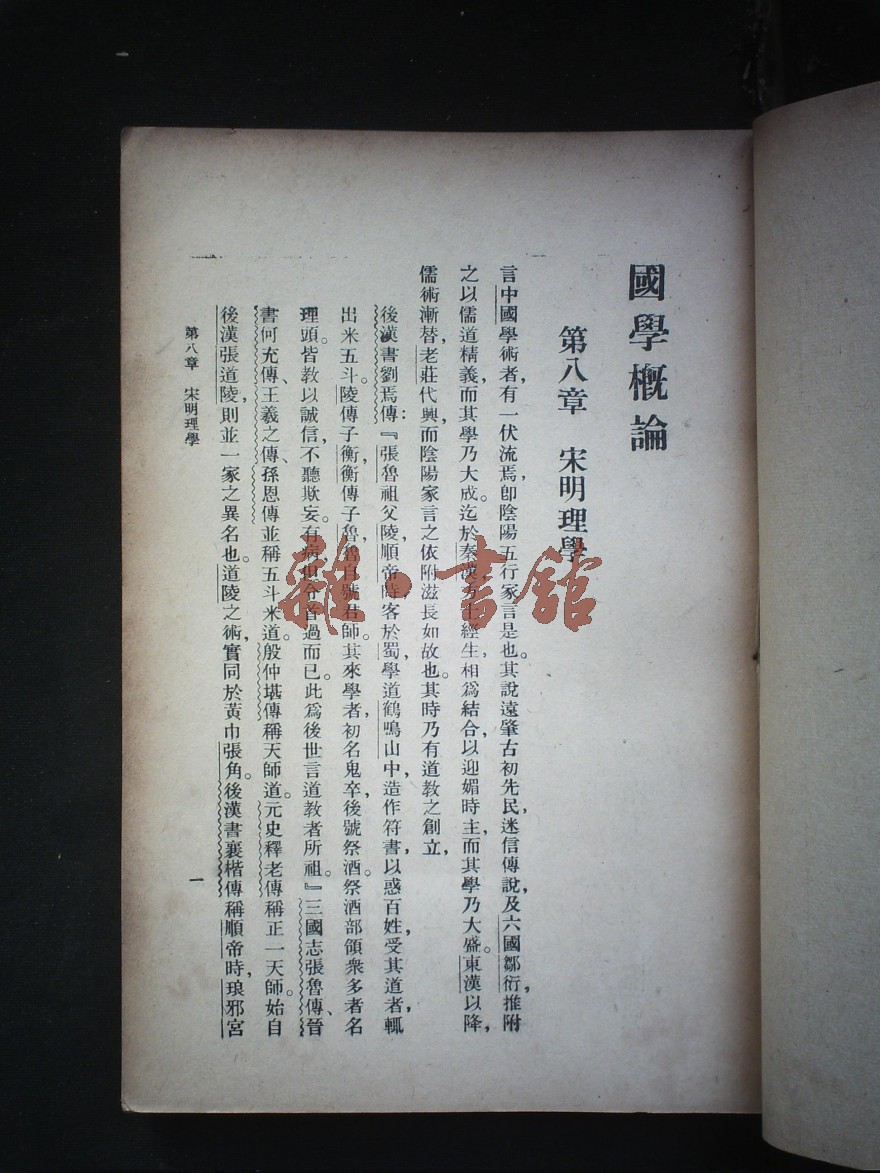 國學概論
第八章　宋明理學
言中國學術者，有一伏流焉，卽陰陽五行家言是也。其說遠肇古初先民，迷信傳說，及六國鄒衍，推附
之以儒道精義，而其學乃大成。迄於秦漢方士經生，相爲結合，以迎媚時主，而其學乃大盛。東漢以降，
儒術漸替，老莊代興，而陰陽家言之依附滋長如故也。其時乃有道教之創立，
後漢書劉焉傳：『張魯祖父陵，順帝時客於蜀，學道鶴鳴山中，造作符書，以惑百姓，受其道者，輒
出米五斗。陵傳子衡，衡傳子魯，魯自號君師。其來學者，初名鬼卒，後號祭酒。祭酒部領衆多者名
理頭。皆教以誠信，不聽欺妄。有病但令首過而已。此爲後世言道教者所祖。』三國志張魯傳、晉
書何充傳、王羲之傳、孫恩傳並稱五斗米道。殷仲堪傳稱天師道。元史釋老傳稱正一天師。始自
後漢張道陵，則並一家之異名也。道陵之術，實同於黃巾張角。後漢書襄楷傳稱順帝時，琅邪宮
第八章　宋明理學
一
雜·書館